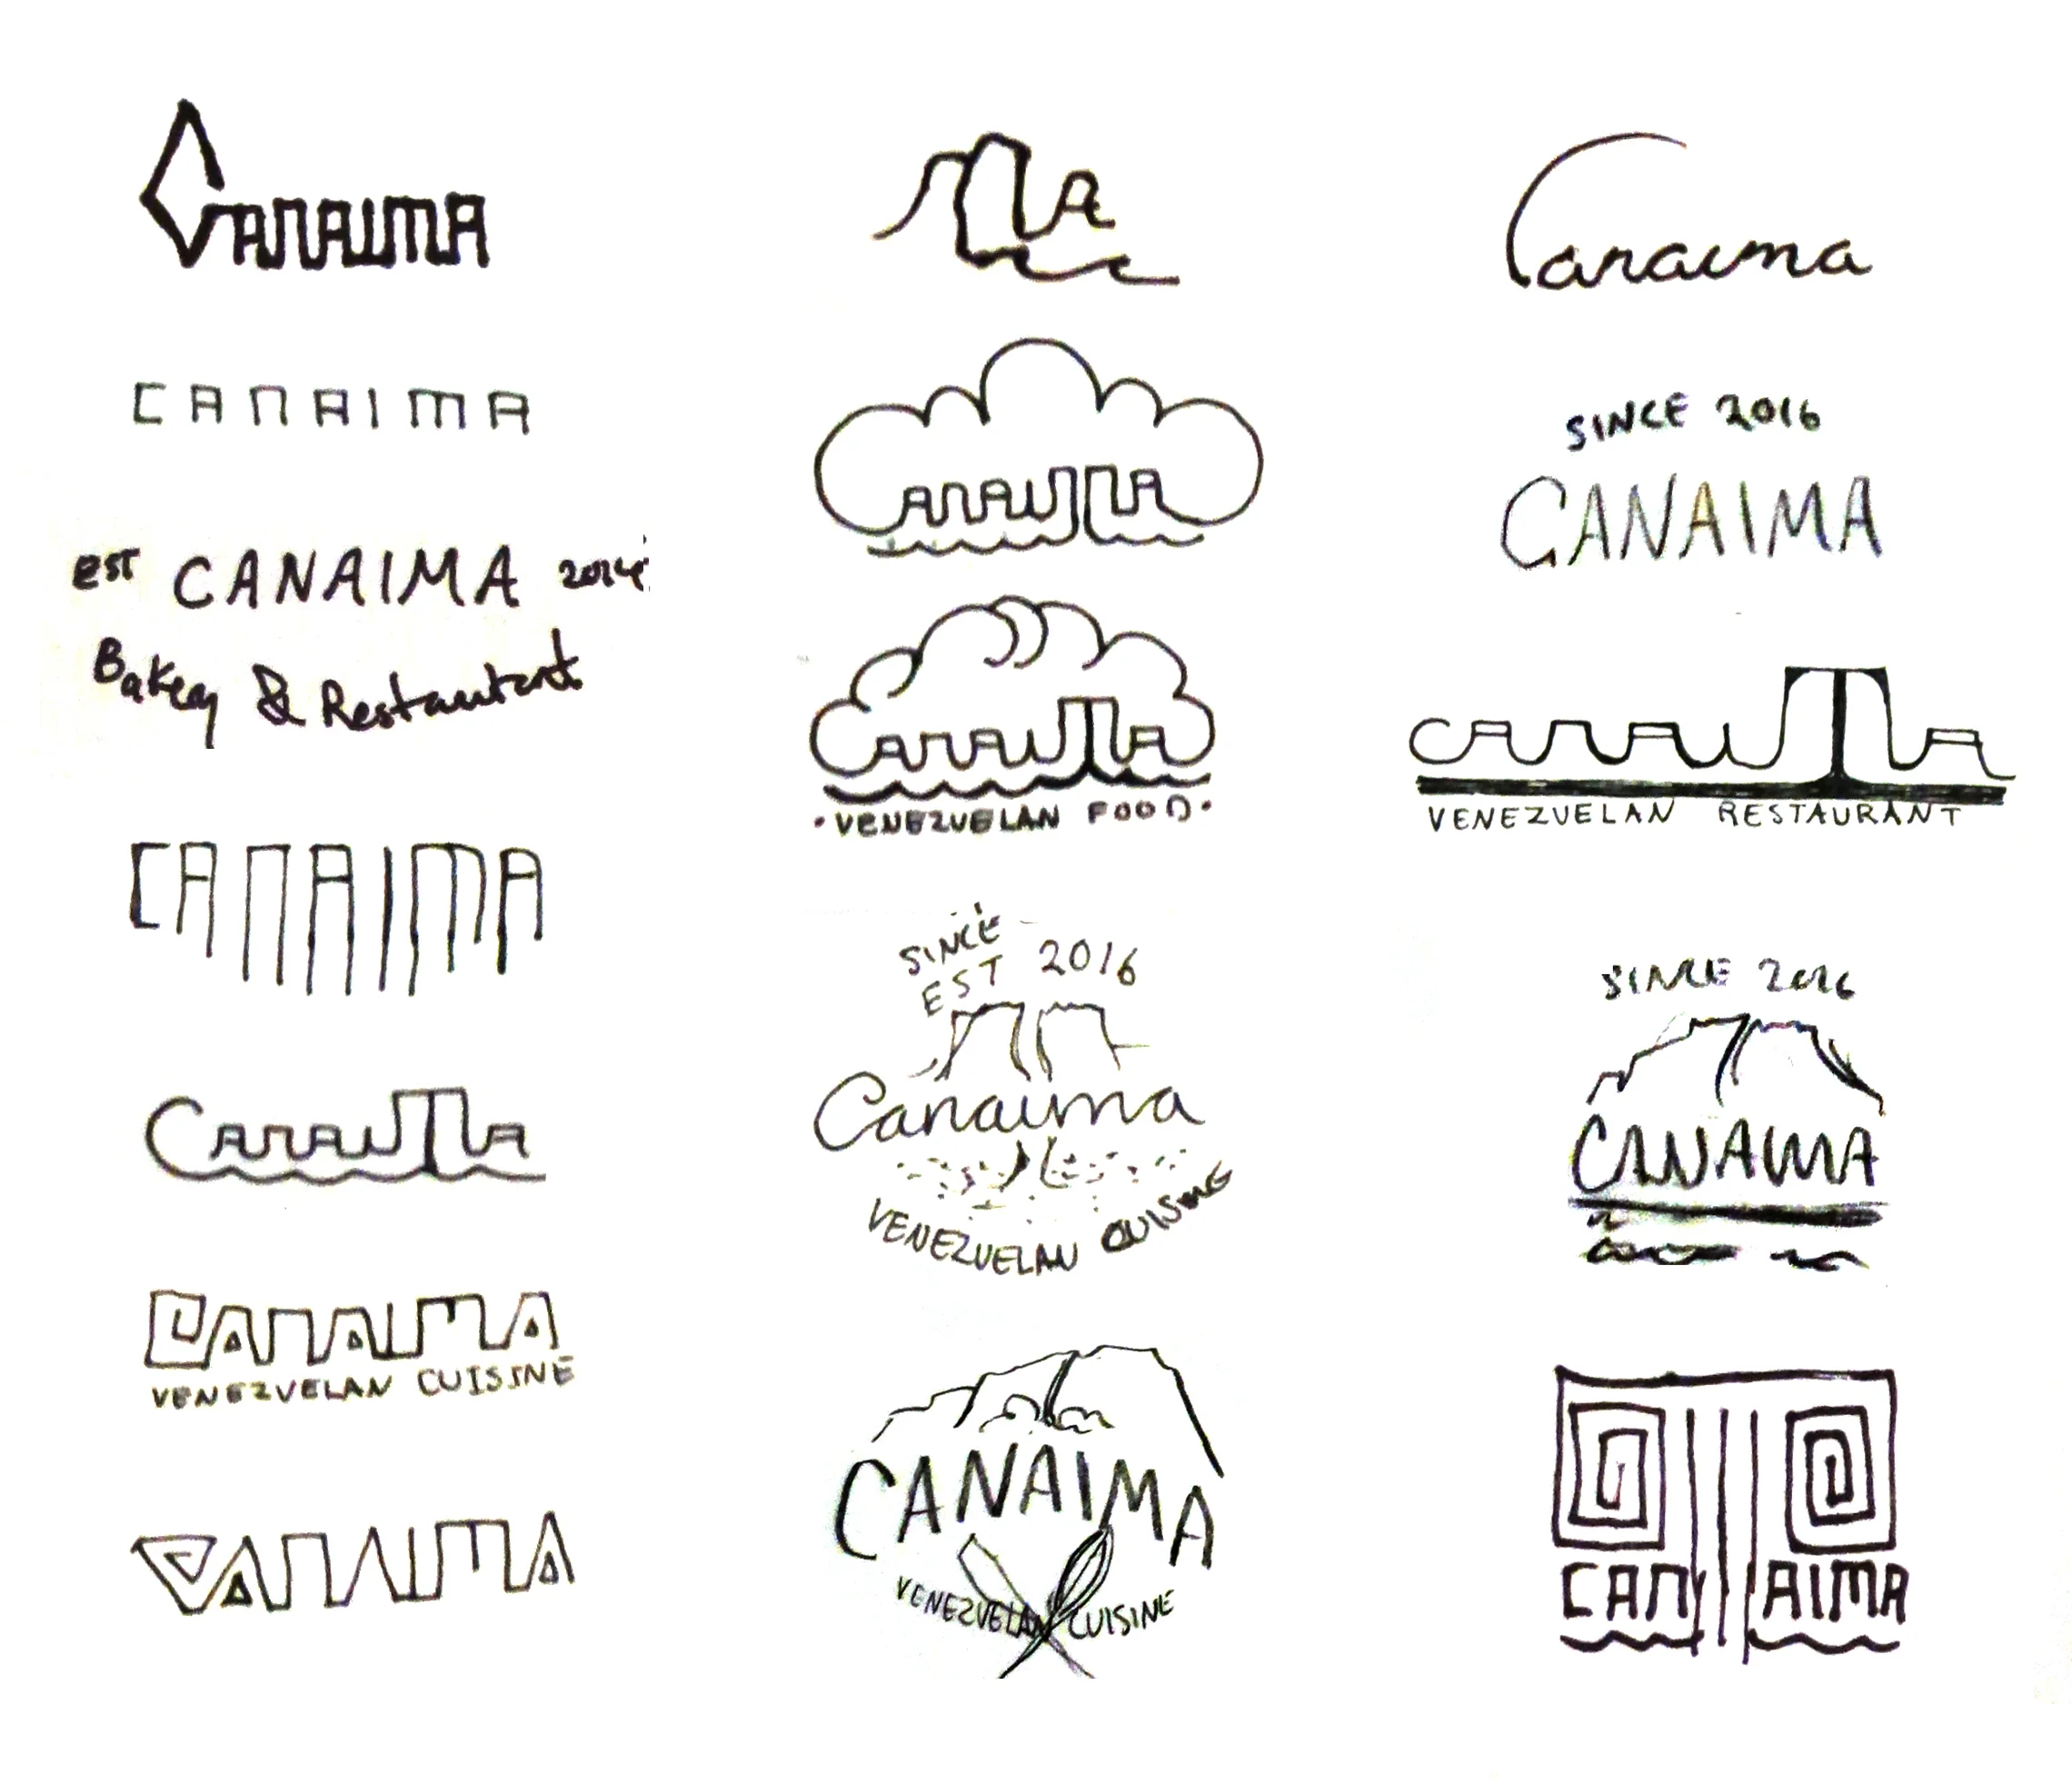 CANAIMA
CANAIMA
EST CANAIMA 2014
Bakery & Restaurant
CANAIMA
CANAIMA
CANAIMA
VENEZUELAN CUISINE
CANAIMA
MA
CANAIMA
CANAIMA
• VENEZUELAN FOOD •
SINCE
EST 2016
Canaima
VENEZUELAN CUISINE
CANAIMA
VENEZUELAN CUISINE
Canaima
SINCE 2016
CANAIMA
CANAIMA
VENEZUELAN RESTAURANT
SINCE 2016
CANAIMA
CANAIMA